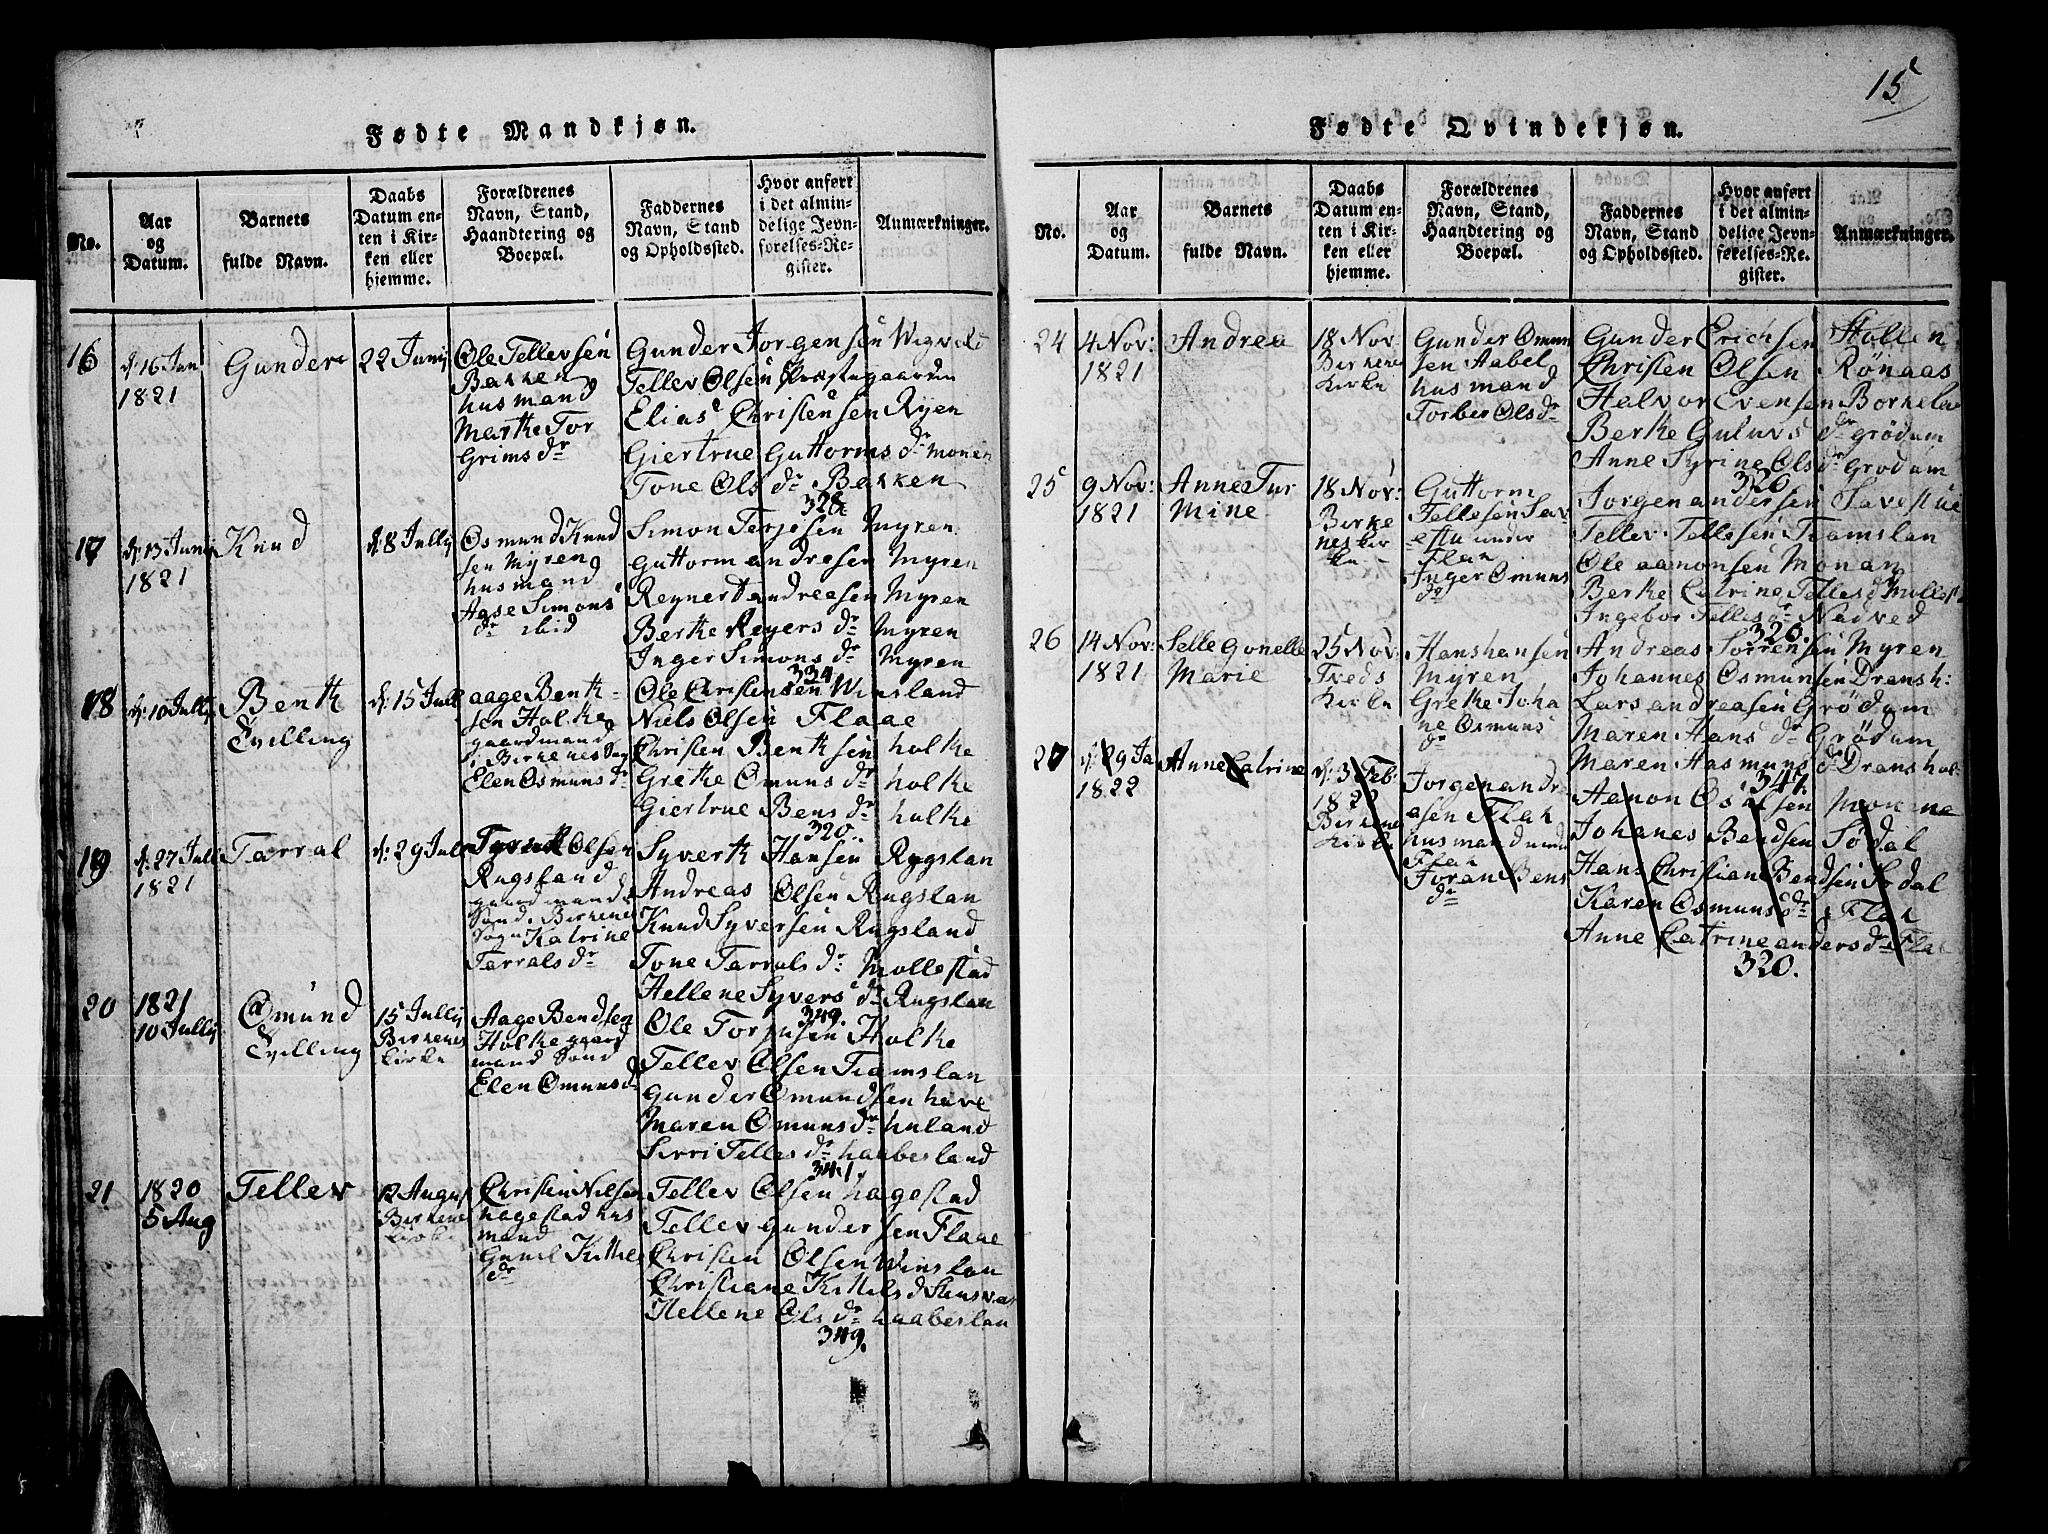 Fødte Mandkjøn.
No.
Aar
og
Datum.
Barnets
fulde Navn.
Daabs
Datum en-
ten i Kir-
ken eller
hjemme.
Forældrenes
Navn, Stand,
Haandtering og
Boepæl.
Faddernes
Navn, Stand
og Opholdssted.
Hvor anført
i det almin-
delige Jevn-
førelses-Re-
gister.
Anmærkninger.
16
d: 16 Jun
1821
Gunder
22 Junij
Ole Tellevsen
Bakken
husmand
Marthe Tor
Grims dr
Gunder Jorgensen
Tellev Olsen Præstegaarden
Elias Christensen Ryen
Giertrue Guttorms dr monen
Tone Ols dr Bakken
328
17
d: 13 Junij
1821
Knud
d: 8 Jullij
Osmund Knud
sen Myren
husmand
Aase Simons
dr ibid
Simon Terjesen Myren
Guttorm andresen Myren
Reynert andreasen Myren
Berthe Reyers dr Myren
Inger Simons dr Myren
334
18
d: 10 Jullij
Benth
Tvilling
d: 15 Jull
aage Benth-
sen Holke
gaardmand
i Birkenes Sogn
Elen Osmuns dr
Ole Christensen Winsland
Niels Olsen Flaae
Christen Benthsen holke
Grethe Omuns dr holke
Giertrue Bens dr holke
320
19
d: 27 Jull
1821
Tarral
d: 29 Jull
Olsen
Rugsland
gaardmand
Sønd. Birkenes
Sogn Katrine
Tarrals dr
Syverth Hansen Rugslan
Andreas Olsen Rugslan
Knud Syversen Rugsland
Tone Tarrals dr Mollestad
Hellene Syvers dr Rugslan
349
20
1821
10 Jullij
Omund
Tvilling
15 Jullij
Birkenes
Kirke
Aage Bendsen
Holke gaard
mand Sønd
Elen Omuns d
Ole Torjusen Holke
Tellev Olsen Tramslan
Gunder Omundsen have
Maren Omuns dr huland
Sirri Telles dr haabesland
341
21
1820
5 Aug
Tellev
12 August
Birkene
Kirke
Christen Nilsen
hagestad hus
mand
Gunil Kittels
dr
Tellev Olsen hagestad
Tellev gundersen Flaae
Christen Olsen Winslan
Christiane Kittels d
Hellene Ols dr haabeslan
349.
15
Fødte Qvindekjøn.
No.
Aar
og
Datum.
Barnets
fulde Navn.
Daabs
Datum en-
ten i Kir-
ken eller
hjemme.
Forældrenes
Navn, Stand,
Haandtering og
Boepæl.
Faddernes
Navn, Stand
og Opholdssted.
Hvor anført
i det almin-
delige Jevn-
førelses-Re-
gister.
Anmærkninger.
24
4 Nov:
1821
Andrea
18 Nov
Birkene
Kirke
Gunder Omun
sen Aabel
husmand
Torber Ols dr
Gunder Erichsen Hollen
Christen Olsen Rönaas
Halvor Evensen Borkela
Berthe Guluvs dr grödum
Anne Syrine Ols dr Grodum
320
25
9 Nov:
1821
Anne Tur
Mine
18 Nov:
Birke
nes Kir
ke
Guttorm
Tellesen Sav
estu under
Flaa
Inger Omuns
dr
Jorgen andersen Savestue
Tellev Tellesen Tramslan
Ole aamonsen Monan
Berthe Catrine Telles d Mollest
Ingebor Telles dr Nedved
320.
26
14 Nov:
1821
Selle gonelle
Marie
25 Nov:
Tveds
Kirke
Hans hansen
Myren
Grethe Joha
ne Osmuns
dr
Andreas Sörrensen Myren
Johannes Osmunsen Dransh:
Lars andreasen Grödum
Maren Hans dr Grödum
Maren Aasmuns dr Dranshol
347.
27
d: 29 Ja
1822
Anne Catrine
d: 3 Feb:
1822
Birkene
Kirke
Jorgen andre
asen Flak
husmand und
Flak
Joran Bens
dr
Aanon Osulsen Monene
Johanes Bendsen Södal
Hans Christian Bendsen Södal
Karen Osmuns dr Flak
Anne Catrine anders dr Flak
320.